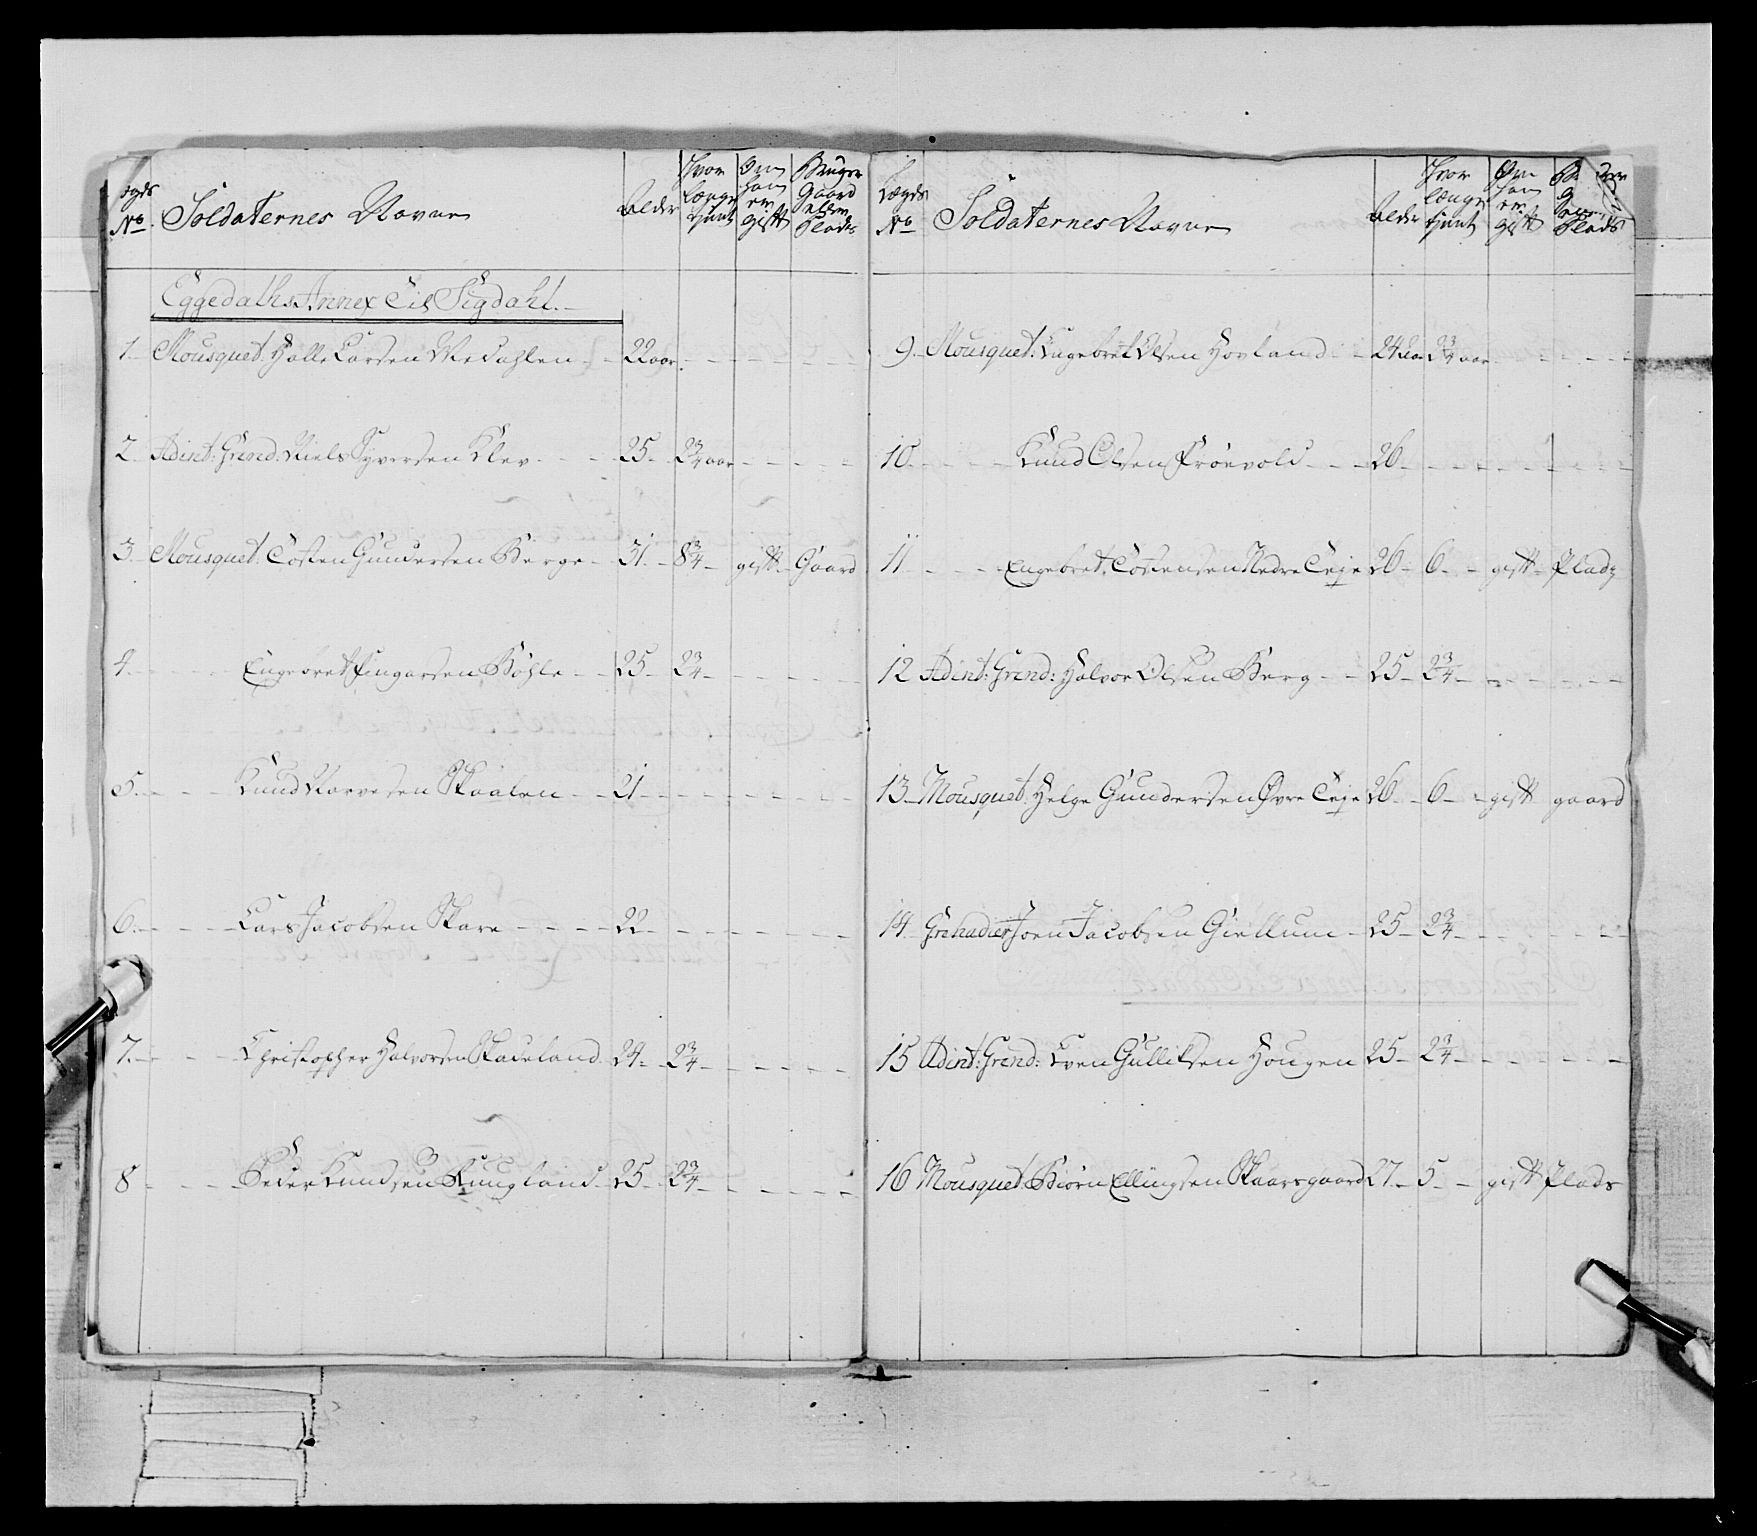 Lægds No. Soldaternes Navne Alder Hvor længe tjent Om han er gift Bruger Gaard eller Plads
Eggedahls Annex Til Sigdahl.
1. Mousquet: Halle Larsen Medahlen 22 aar
2. Adint: Grend: Niels Syversen Klev 25 2¾ aar
3. Mousquet: Tosten Gundersen Berge 31 8¾ gift Gaard
4. Engebret Fingarsen Bøhle 25 2¾
5. Knud Narvesen Skaalen 21
6. Lars Jacobsen Skare 22
7. Christopher Halvorsen Skadeland 24 2¾
8 Peder Knudsen Ruugland 25 2¾
Lægds No. Soldaternes Navne Alder Hvor længe tjent Om han er gift Plads
9. Mousquet: Engebret Olsen Hovland 24 aar 2¾ aar
10. Knud Olsen Frøevold 26
11 Engebret Tostensen Nedre Teje 26 6 gift Plads
12 Adint: Grend: Halvor Olsen Berg 25 2¾
13 Mousquet: Helge Gundersen Øvre Teje 26 6 gift gaard
14 Grenadier Joen Jacobsen Giellum 25 2¾
15 Adint: Grend: Even Gulliksen Hougen 25 2¾
16 Mousquet: Biørn Ellingsen Skaarsgaard 27 5 gift Plads